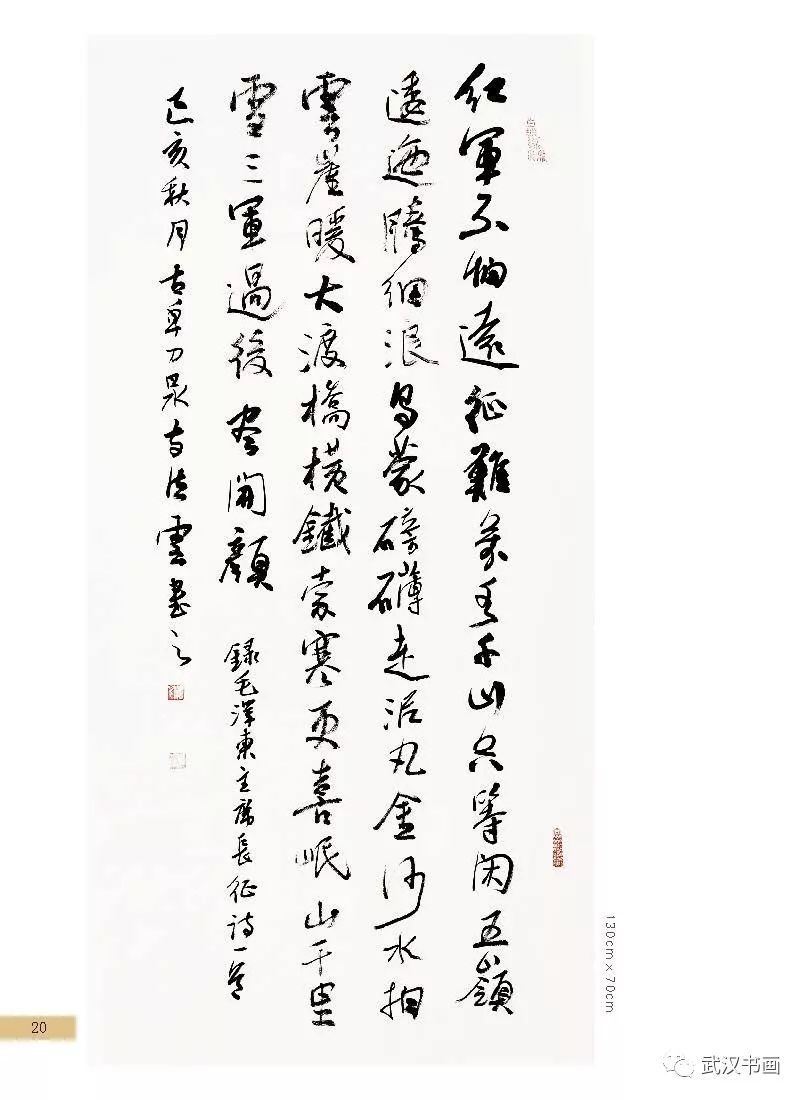 紅軍不怕遠征難萬水千山只等闲五嶺
逶迤騰細浪烏蒙磅礴走泥丸金沙水拍
雲崖暖大渡橋横鐵索寒更喜岷山千里
雪三軍過後盡開顏
錄毛澤東主席長征詩一首
己亥秋月古卓刀泉寺法雲書之
130cm×70cm
20
武汉书画